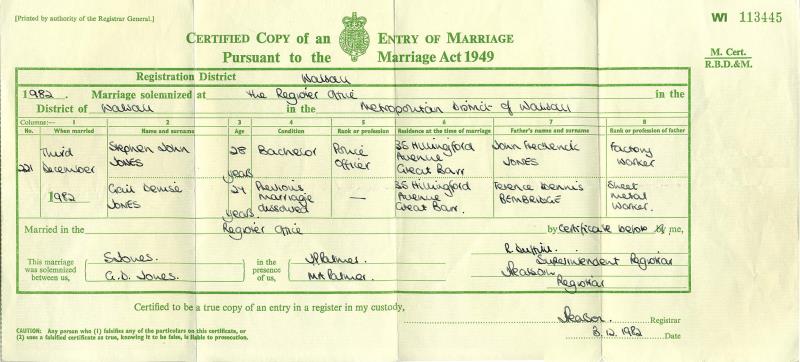 [Printed by authority of the Registrar General.]
WI 113445
CERTIFIED COPY of an ENTRY OF MARRIAGE
Pursuant to the Marriage Act 1949
M. Cert.
R.B.D.&M.
Registration District Walsall
1982. Marriage solemnized at the Register Office in the
District of Walsall in the Metropolitan District of Walsall
Columns:— 1 2 3 4 5 6 7 8
No. When married Name and surname Age Condition Rank or profession Residence at the time of marriage Father's name and surname Rank or profession of father
221 Third December 1982 Stephen John JONES 28 years Bachelor Police Officer 35 Hillingford Avenue Great Barr John Frederick JONES Factory Worker
Gail Denise JONES 24 years Previous marriage dissolved — 35 Hillingford Avenue Great Barr. Terence Dennis BEMBRIDGE Sheet Metal Worker.
Married in the Register Office by Certificate before by me,
This marriage was solemnized between us,
S. Jones.
G. D. Jones.
in the presence of us,
J Palmer.
M A Palmer.
Superintendent Registrar
Registrar
Certified to be a true copy of an entry in a register in my custody,
Registrar
3.12.1982 Date
CAUTION: Any person who (1) falsifies any of the particulars on this certificate, or
(2) uses a falsified certificate as true, knowing it to be false, is liable to prosecution.